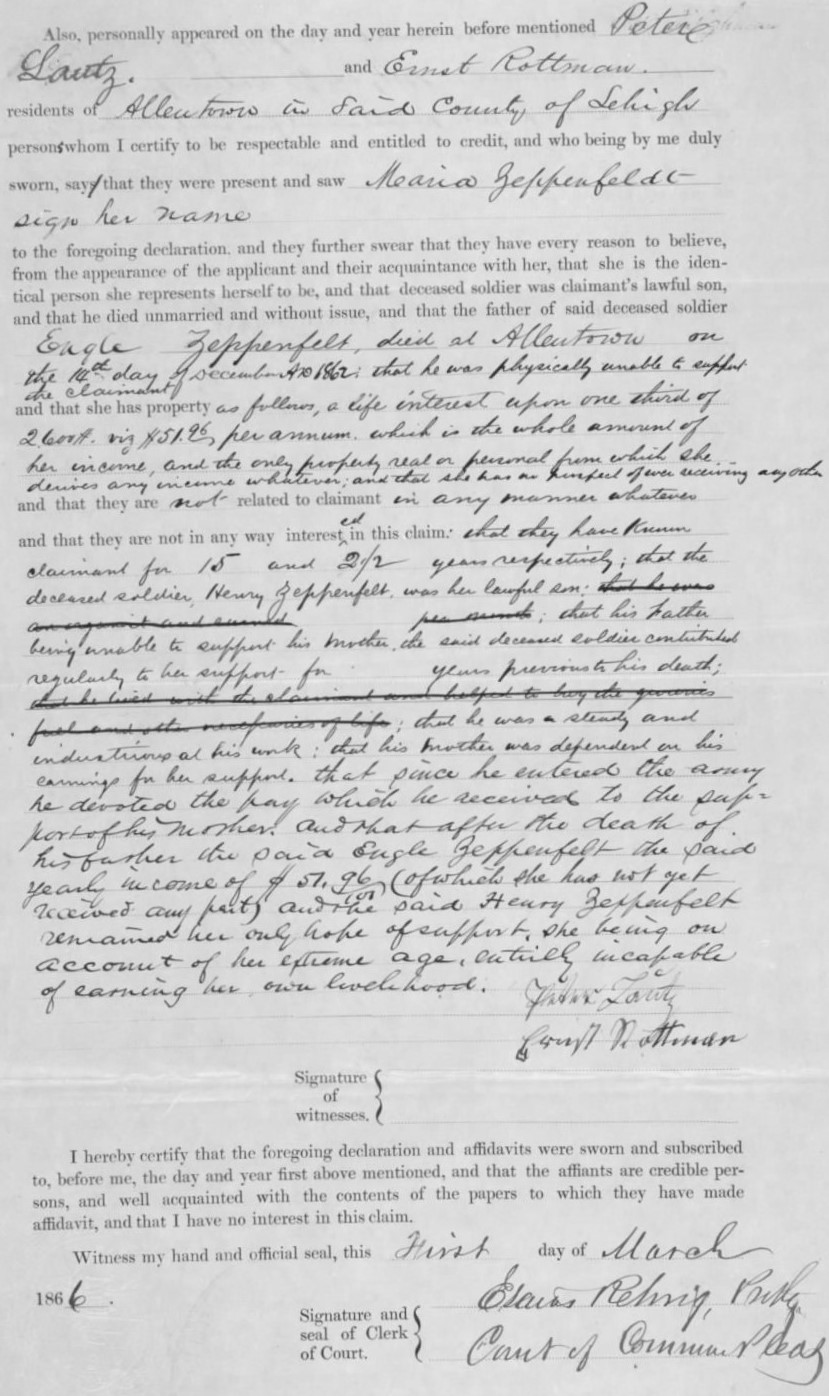 Also, personally appeared on the day and year herein before mentioned Peter
Lautz. and Ernst Rottman.
residents of Allentown in Said County of Lehigh
persons whom I certify to be respectable and entitled to credit, and who being by me duly
sworn, say that they were present and saw Maria Zeppenfeldt
sign her name
to the foregoing declaration, and they further swear that they have every reason to believe,
from the appearance of the applicant and their acquaintance with her, that she is the iden-
tical person she represents herself to be, and that deceased soldier was claimant's lawful son,
and that he died unmarried and without issue, and that the father of said deceased soldier
Engle Zeppenfelt, died at Allentown on
the 14th day of December AD 1862; that he was physically unable to support
the claimant
and that she has property as follows, a life interest upon one third of
2600 viz $51.96, per annum. which is the whole amount of
her income, and the only property real or personal from which she
derives any income whatever; and that she has no prospect of ever receiving any other
and that they are not related to claimant in any manner whatever
and that they are not in any way interested in this claim: that they have known
claimant for 15 and 2 1/2 years respectively; that the
deceased soldier, Henry Zeppenfelt. was her lawful son; that he was
an organist and earned per month; that his Father
being unable to support his mother, the said deceased soldier contributed
regularly to her support for years previous to his death;
that he lived with the claimant and helped to buy the groceries
fuel and other necessaries of life; that he was a steady and
industrious at his work; that his mother was dependent on his
earnings for her support. that since he entered the army
he devoted the pay which he received to the sup=
port of his Mother. and that after the death of
his father the said Engle Zeppenfelt the said
yearly income of $51.96 (of which she has not yet
received any part) and the said Henry Zeppenfelt
remained her only hope of support, she being on
account of her extreme age, entirely incapable
of earning her own livelihood.
Peter Lautz
Ernst Rottman
Signature
of
witnesses.
I hereby certify that the foregoing declaration and affidavits were sworn and subscribed
to, before me, the day and year first above mentioned, and that the affiants are credible per-
sons, and well acquainted with the contents of the papers to which they have made
affidavit, and that I have no interest in this claim.
Witness my hand and official seal, this First day of March
1866.
Signature and
seal of Clerk
of Court.
Elaias Rehrig, Prothy
Court of Common Pleas